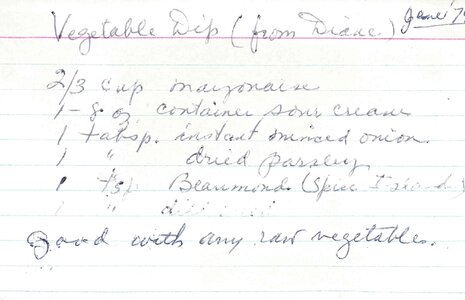 Vegetable Dip (from Diane)
2/3 cup mayonaise
1 - 8 oz. container sour cream
1 tabsp. instant minced onion
1 " dried parsley
1 tsp. Beaumond (Spice Islands)
1 "
Good with any raw vegetables.